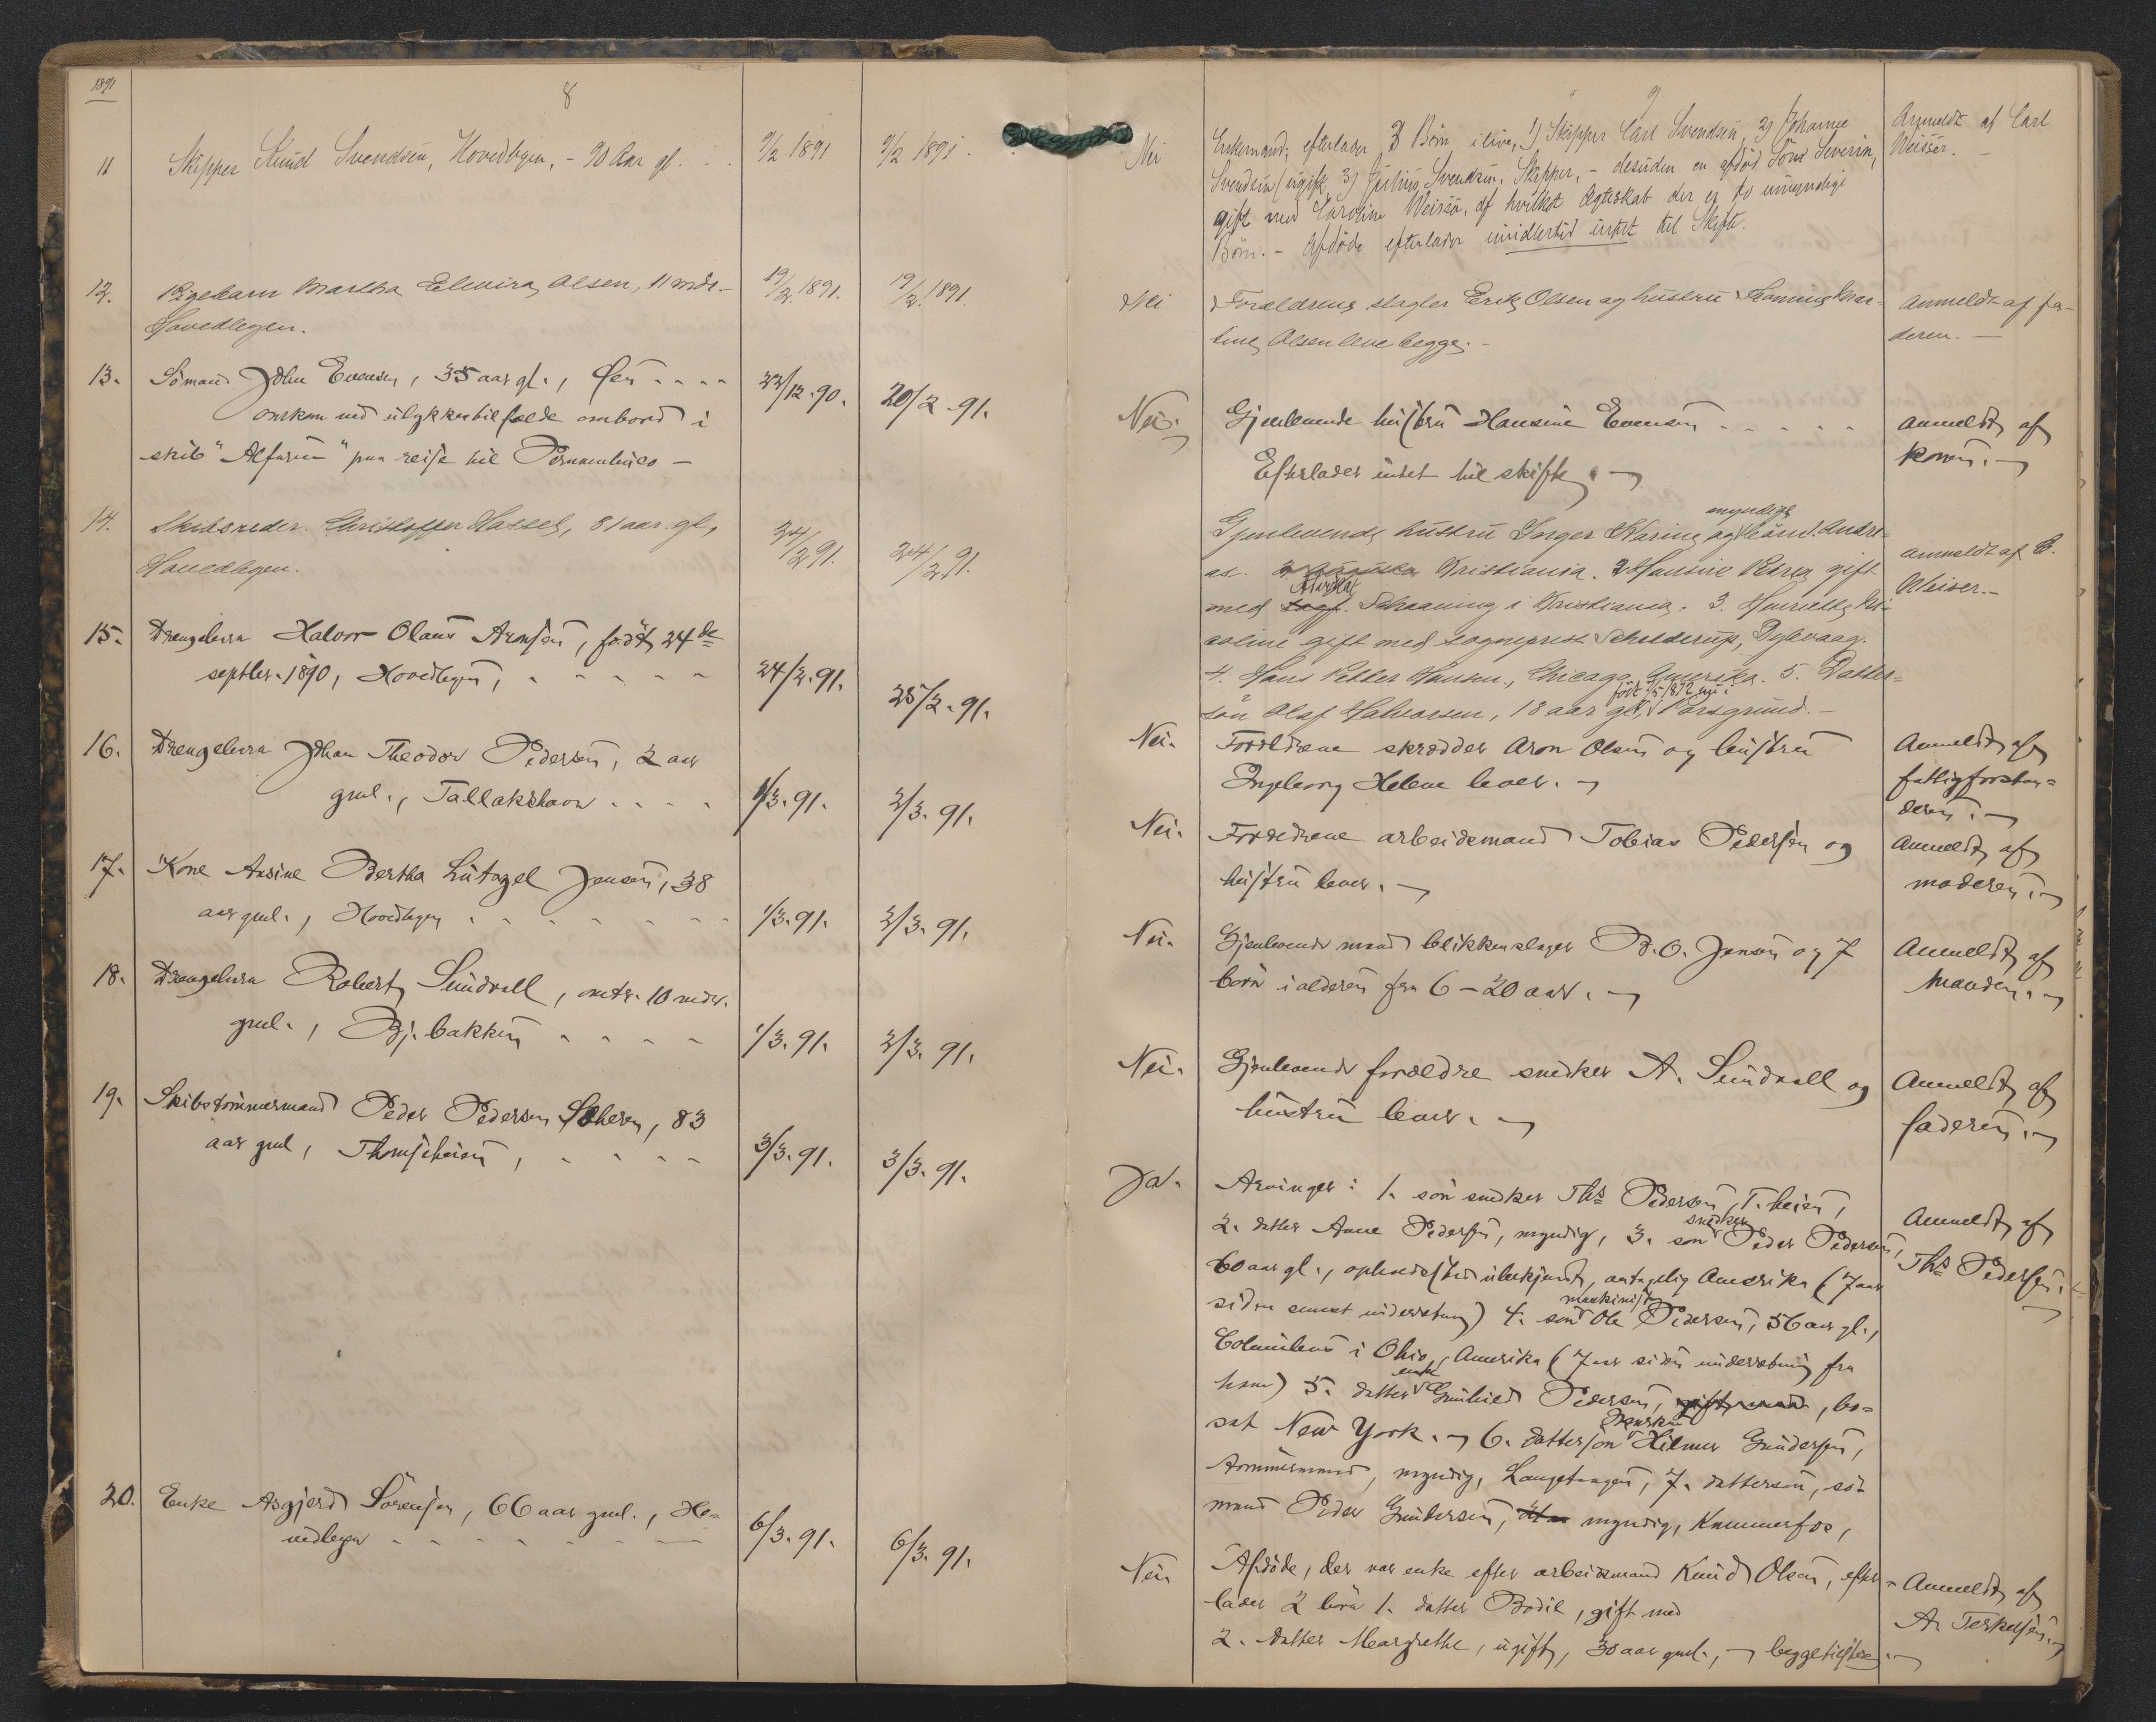 1891
8
11 Skipper Knud Svendsen, Hovedbyen, - 90 Aar gl. . . 9/2 1891 9/2 1891.
12. Pigebarn Martha Elmira Olsen, 11 mdr. 19/2.1891. 19/2.1891.
Hovedbyen.
13. Sömand John Evensen, 35 aar gl., Øen . . . . 22/12.90. 20/2.91.
omkom ved ulykkestilfælde ombord i
skib "Alfarin" paa reise til Pernambuco -
14. Skibsreder Christoffer Hassel, 81 aar gl, 24/2 91. 24/2 91.
Hovedbyen.
15. Drengebarn Halvor Olaus Aronsen, födt 24de
septbr. 1890, Hovedbyen, . . . . . 24/2.91. 25/2.91.
16. Drengebarn Johan Theodor Pedersen, 2 aar
gml., Tallakshavn . . . . 1/3.91. 2/3.91.
17. Kone Ansine Bertha Jensen, 38
aar gml., Hovedbyen . . . . . . 1/3.91. 2/3.91.
18. Drengebarn Robert Sundvall, omtr. 10 mdr.
gml., Bj.bakken . . . . 1/3.91. 2/3.91.
19. Skibstömmermand Peder Pedersen, 83
aar gml, Thomsheien, . . . . 3/3.91. 3/3.91.
20. Enke Asgjerd Sörensen, 66 aar gml., Ho-
vedbyen . . . . . . 6/3.91. 6/3.91.
9
Nei Enkemand; efterlader 3 Börn ilive, 1) Skipper Carl Svendsen, 2) Johanne
Svendsen ugift, 3) Julius Svendsen, Skipper, - desuden en afdöd Sön Severin,
gift med Caroline Weisser, af hvilket Ægteskab der er to umyndige
Börn. - Afdöde efterlader imidlertid intet til Skifte.
Anmeldt af Carl
Weisser. -
Nei Forældrene slagter Erik Olsen og hustru
tine Olsen leve begge. -
Anmeldt af fa-
deren. -
Nei. Gjenlevende hustru Hansine Evensen . . . . .
Efterlader intet til skifte. -
Anmeldt af
konen. -
myndige
Gjenlevende hustru Inger Karine og börn 1. Andre-
as. Kristiania. 2. Hansine Petrea gift
Advokat
med Schaaning i Kristiania. 3. Henriette
gift med sogneprest Schelderup, Dybvaag.
4. Hans Petter Hansen, Chicago, Amerika. 5. Datter-
födt 7/5 1872
sön Olaf Halvorsen, 18 aar gl, i Porsgrund. -
anmeldt af C.
Weiser. -
Nei. Forældrene skrædder Aron Olsen og hustru
Ingeborg Helene lever. -
Anmeldt af
fattigforstan-
deren. -
Nei. Forældrene arbeidsmand Tobias Pedersen og
hustru lever. -
Anmeldt af
moderen. -
Nei. Gjenlevende mand blikkenslager B. O. Jensen og 7
börn i alderen fra 6 - 20 aar. -
Anmeldt af
manden. -
Nei. Gjenlevende forældre snedker A. Sundvall og
hustru lever. -
Anmeldt af
faderen. -
Ja. Arvinger: 1. sön snedker Ths Pedersen, T.heien,
snedker
2. datter Anne Pedersen, myndig, 3. sön Peder Pedersen,
60 aar gl., opholdssted ubekjendt, antagelig Amerika (7 aar
maskinist
siden senest underretning) 4. sön Ole Pedersen, 56 aar gl.,
Columbus i Ohio, Amerika (7 aar siden underretning fra
enke
ham) 5. datter Gunhild Pedersen, , bo-
sat New York. - 6. dattersön Hilmer Gundersen,
tömmermand, myndig, Langetangen, 7. dattersön, sö-
mand Peder Gundersen, myndig, Kammerfos,
Anmeldt af
Ths Pedersen. -
Nei. Afdöde, der var enke efter arbeidsmand Knud Olsen, efter-
lader 2 börn 1. datter Bodil, gift med
2. datter Margrethe, ugift, 30 aar gml., - begge tilstede. -
Anmeldt af
A. Terkelsen. -